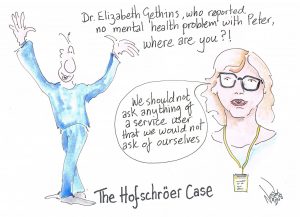 Dr. Elizabeth Gethins, who reported
no mental health problem with Peter,
where are you?!
We should not
ask anything of
a service user
that we would not
ask of ourselves
The Hofschröer Case